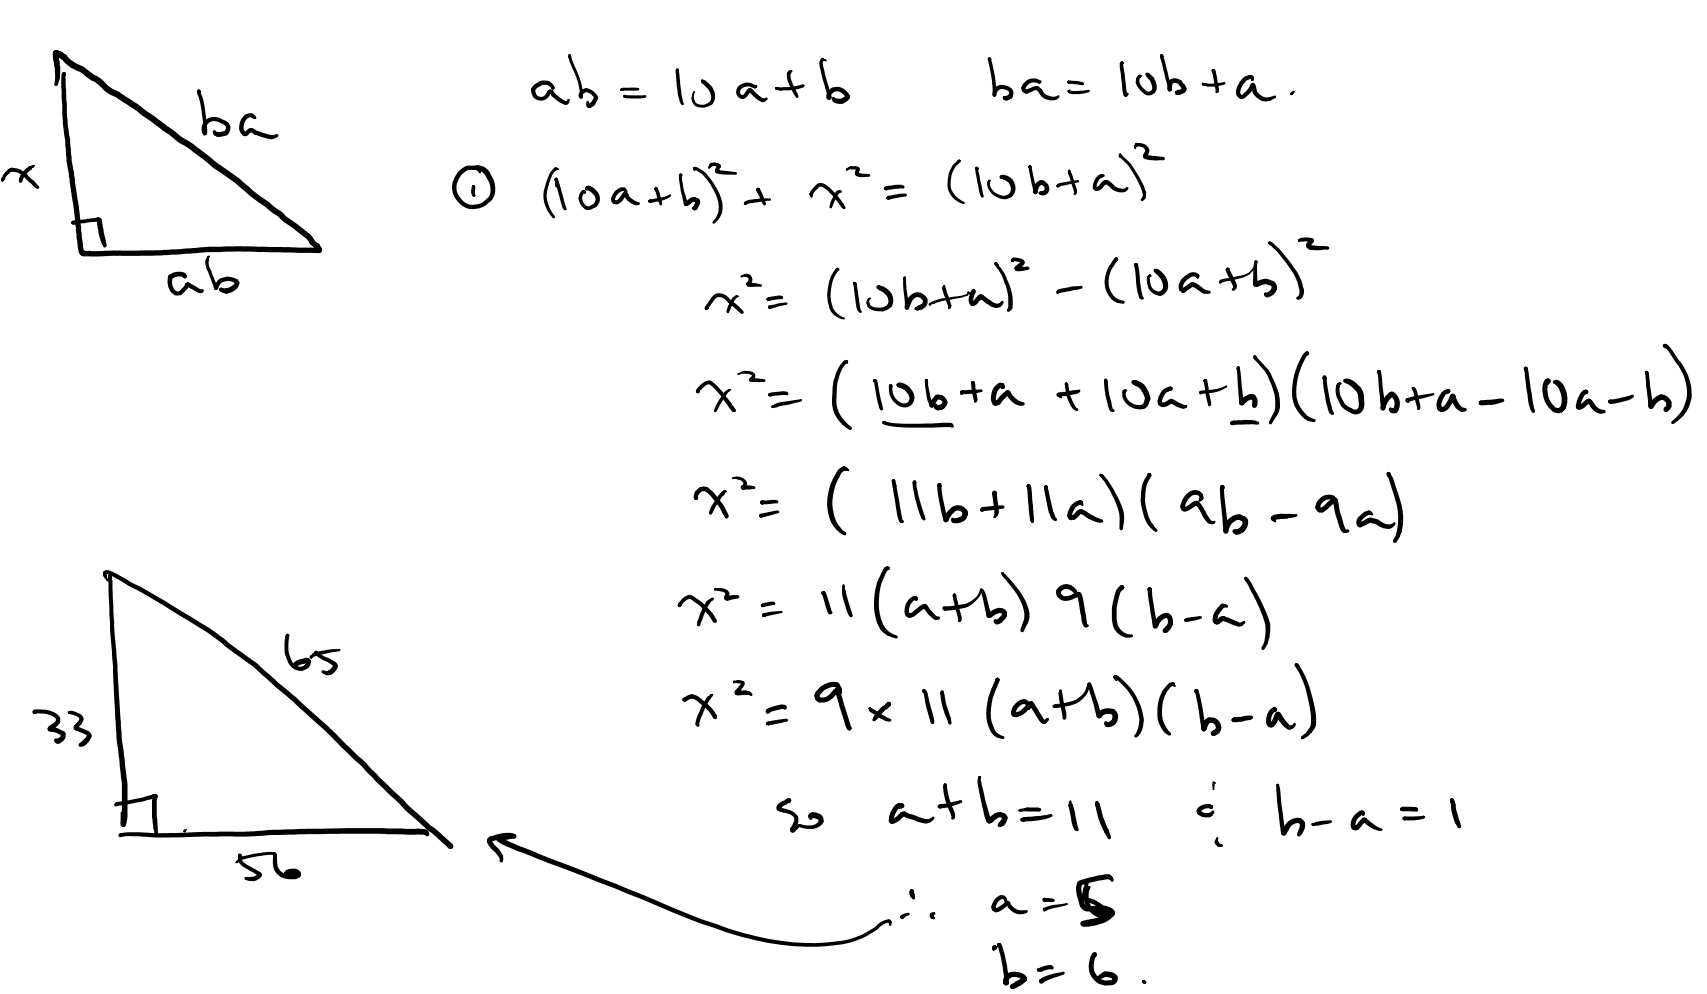 ba
x
ab
ab = 10a+b ba = 10b+a.
① (10a+b)² + x² = (10b+a)²
x² = (10b+a)² - (10a+b)²
x² = (10b+a + 10a+b)(10b+a-10a-b)
x² = (11b+11a)(9b-9a)
x² = 11(a+b) 9(b-a)
x² = 9×11(a+b)(b-a)
so a+b=11 & b-a=1
∴ a=5
b=6.
65
33
56